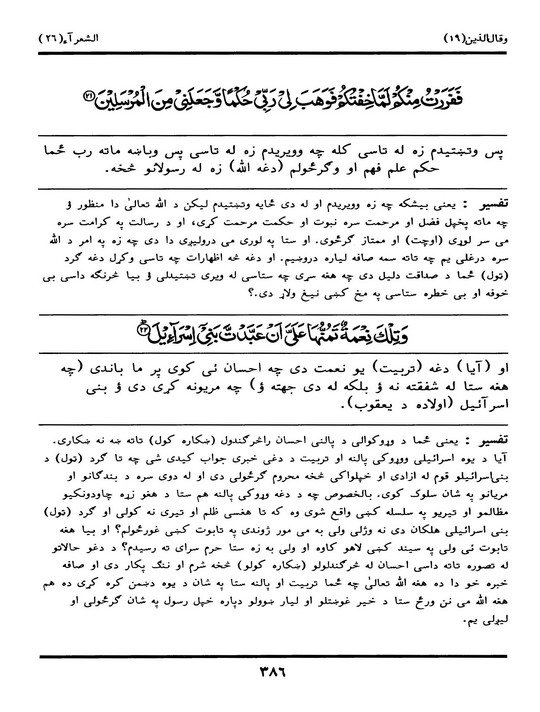 وقال‌الذین(۱۹) الشعرآء(۲۶)
فَفَرَرْتُ مِنْكُمْ لَمَّا خِفْتُكُمْ فَوَهَبَ لِيْ رَبِّيْ حُكْمًا وَّجَعَلَنِيْ مِنَ الْمُرْسَلِيْنَ ۲۱
پس وتښتیدم زه له تاسی کله چه وویریدم زه له تاسی پس وباښه ماته رب ځما
حکم علم فهم او وګرځولم (دغه الله) زه له رسولانو څخه.
تفسیر : یعنی بیشکه چه زه وویریدم او له دی ځایه وتښتیدم لیکن د الله تعالیٰ دا منظور ؤ
چه ماته پخپل فضل او مرحمت سره نبوت او حکمت مرحمت کړی، او د رسالت په کرامت سره
می سر لوړی (اوچت) او ممتاز ګرځوی. او ستا په لوری می درولیږی دا دی چه زه په امر د الله
سره درغلی یم چه تاته سمه صافه لیاره دروښیم. او دغه څه اظهارات چه تاسی وکړل دغه ګرد
(تول) ځما د صداقت دلیل دی چه هغه سړی چه ستاسی له ویری تښتیدلی ؤ بیا څرنګه داسی بی
خوفه او بی خطره ستاسی په مخ کښی نیغ ولاړ دی.؟
وَتِلْكَ نِعْمَةٌ تَمُنُّهَا عَلَيَّ اَنْ عَبَّدْتَّ بَنِيْٓ اِسْرَآءِيْلَ ۲۲
او (آیا) دغه (تربیت) یو نعمت دی چه احسان ئی کوی پر ما باندی (چه
هغه ستا له شفقته نه ؤ بلکه له دی جهته ؤ) چه مریونه کړی دی ؤ بنی
اسرآئیل (اولاده د یعقوب).
تفسیر : یعنی ځما د وړوکوالی د پالنی احسان راڅرګندول (ښکاره کول) تاته ښه نه ښکاری.
آیا د یوه اسرائیلی ووړوکی پالنه او تربیت د دغی خبری جواب کیدی شی چه تا ګرد (تول) د
بنی‌اسرائیلو قوم له ازادی او خپلواکی څخه محروم ګرځولی دی او له دوی سره د بندګانو او
مریانو په شان سلوک کوی. بالخصوص چه د دغه وړوکی پالنه هم ستا د هغو زړه چاودونکیو
مظالمو او تیریو په سلسله کښی واقع شوی وه که تا هغسی ظلم او تیری نه کولی او ګرد (تول)
بنی اسرائیلی هلکان دی نه وژلی ولی به می مور ژوندی په تابوت کښی غورځولم؟ او بیا هغه
تابوت ئی ولی په سیند کښی لاهو کاوه او ولی به زه ستا حرم سرای ته رسیدم؟ د دغو حالاتو
له تصوره تاته داسی احسان له څرګندلولو (ښکاره کولو) څخه شرم او ننګ پکار دی او صافه
خبره خو دا ده هغه الله تعالیٰ چه ځما تربیت او پالنه ستا په شان د یوه دښمن کره کړی ده هم
هغه الله می نن ورځ ستا د خیر غوښتلو او لیار ښوولو دپاره خپل رسول په شان ګرځولی او
لیږلی یم.
۳۸۶